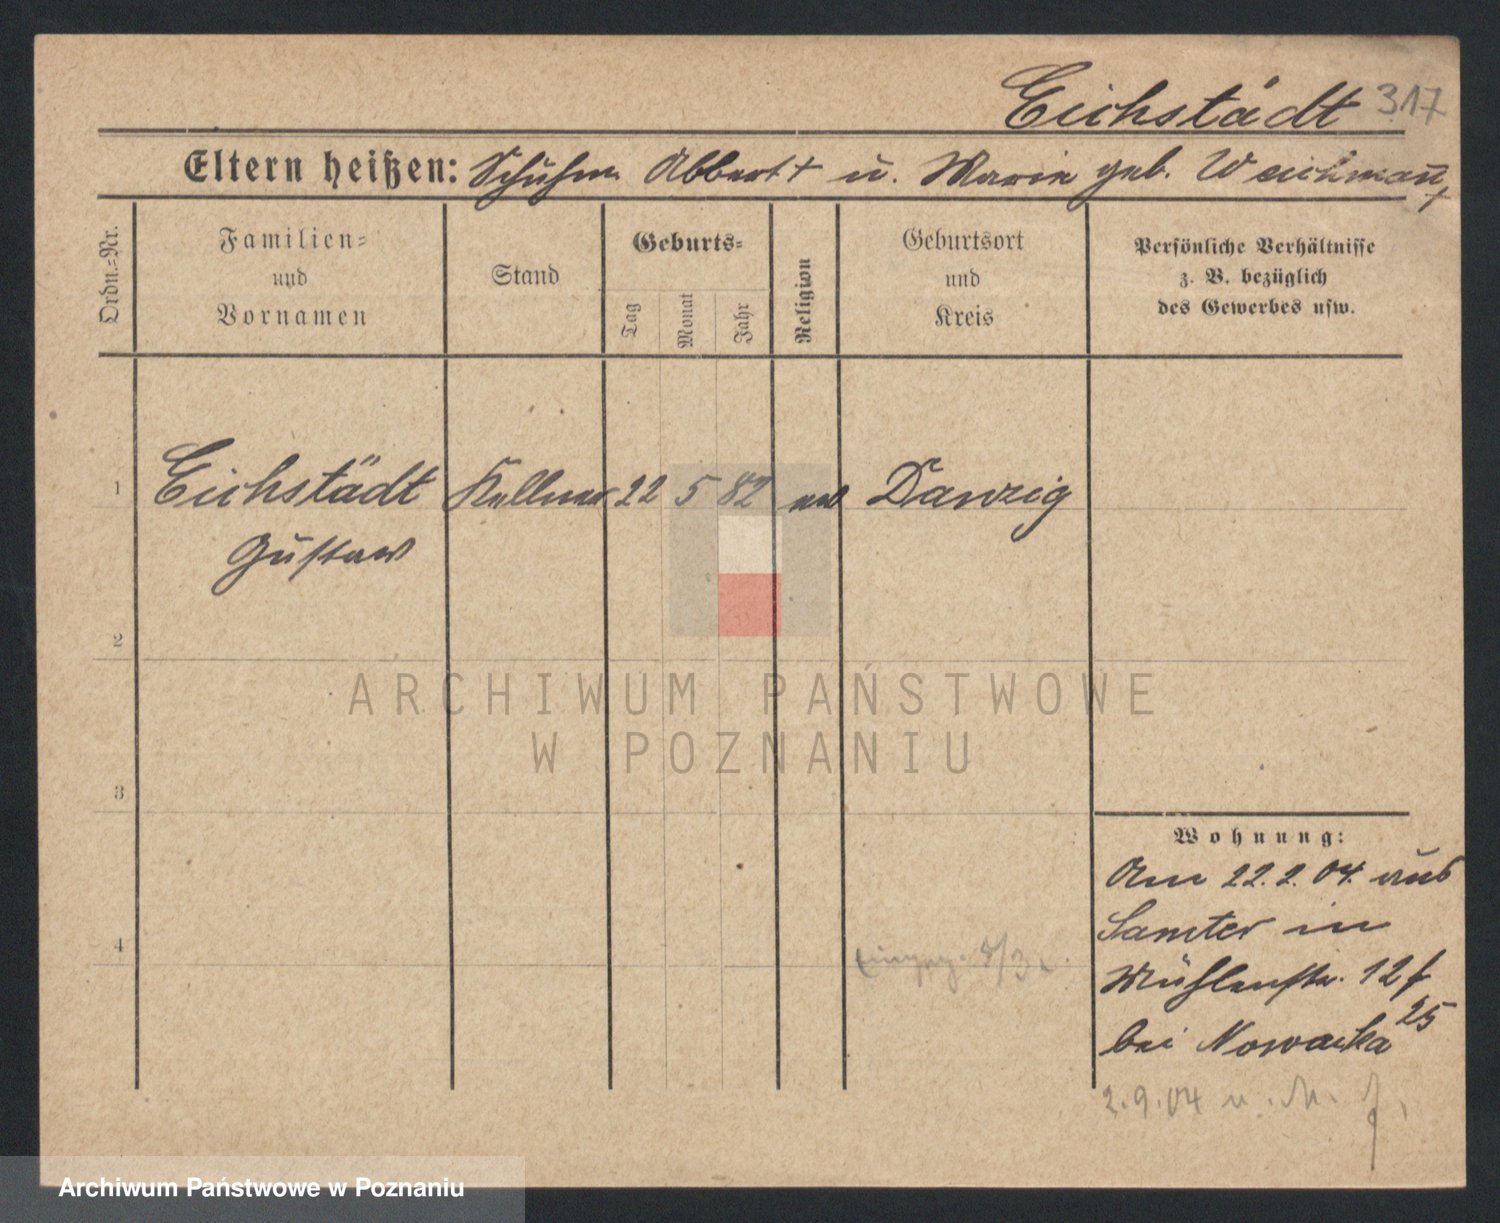 Eichstädt 317
Eltern heißen: Schuhm. Albert † u. Marie geb. Weichmann †
Ordn.-Nr.
Familien-
und
Vornamen
Stand
Geburts-
Tag
Monat
Jahr
Religion
Geburtsort
und
Kreis
Persönliche Verhältnisse
z. B. bezüglich
des Gewerbes usw.
1 Eichstädt Kellner 22 5 82 ev Danzig
Gustav
2
3
4
Wohnung:
Am 22.2.04. aus
Samter in
Mühlenstr. 12 f
bei Nowacka 25
2.9.04 u. M.
8/3
ARCHIWUM PAŃSTWOWE
W POZNANIU
Archiwum Państwowe w Poznaniu